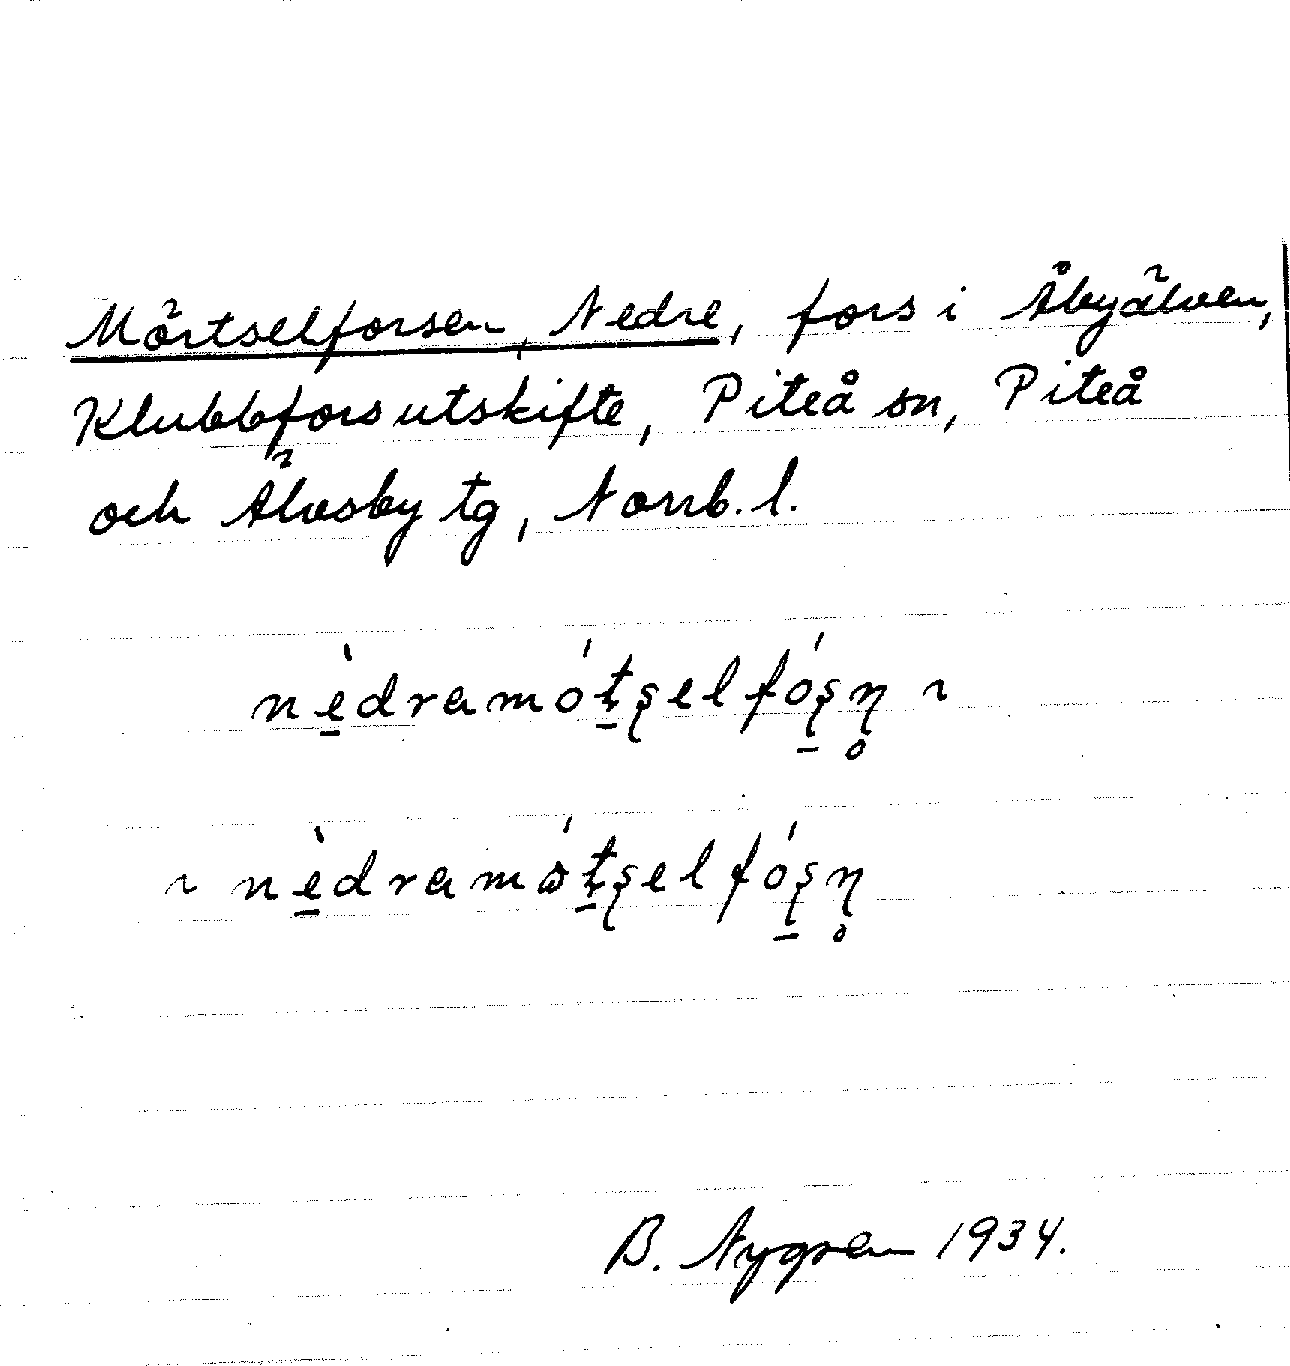 Mörtselforsen, Nedre, fors i Åbyälven,
Klubbforsutskifte, Piteå sn, Piteå
och Älvsby tg, Norrb. l.
nèdramótşelfóşŋ̥ ~
~ nèdramótşelfóşŋ̥
B. Nygren 1934.